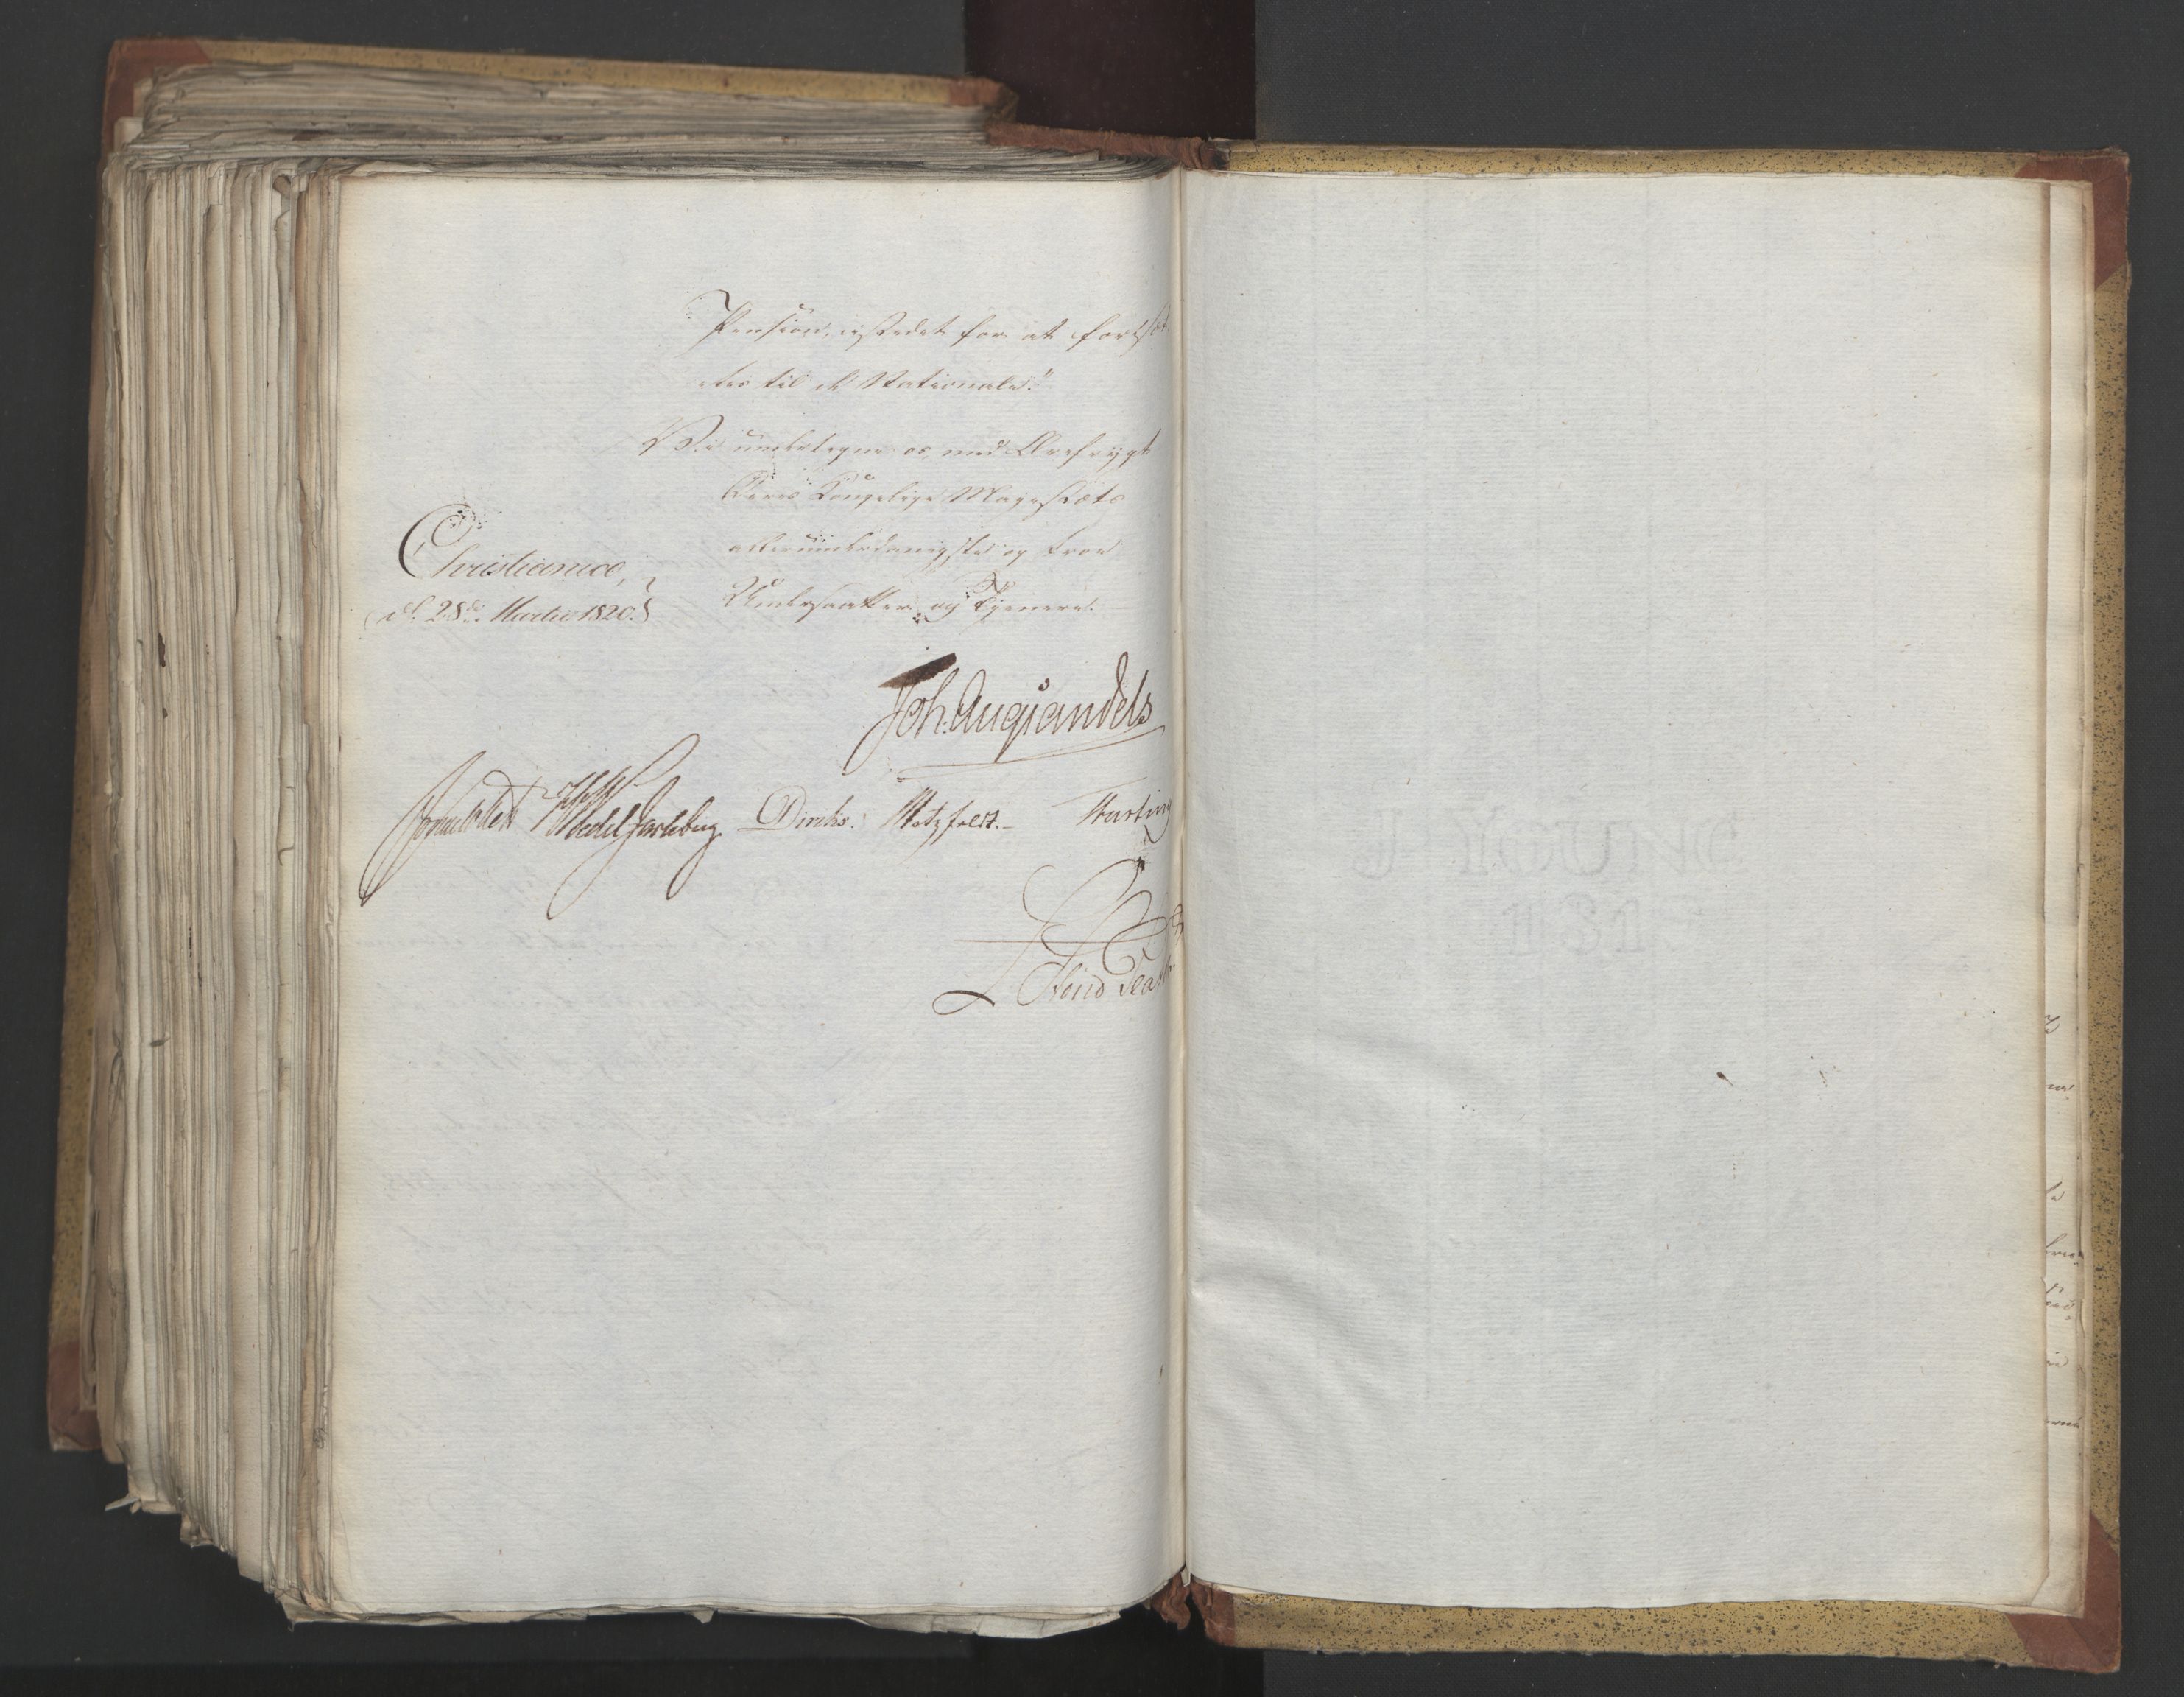 Pension, istedet for at fortsæt
tes til de Nationale."
Vi undertegne os med Ærefrygt
Deres Kongelige Majestæts
allerunderdanigste og troe
Undersaatter og Tjenere.
Christiania,
d. 28de Martii 1820.
Joh. Aug Sandels
Sommerhielm HWedel Jarlsberg Diriks. Motzfeldt. Hasting
J YOUNG
181